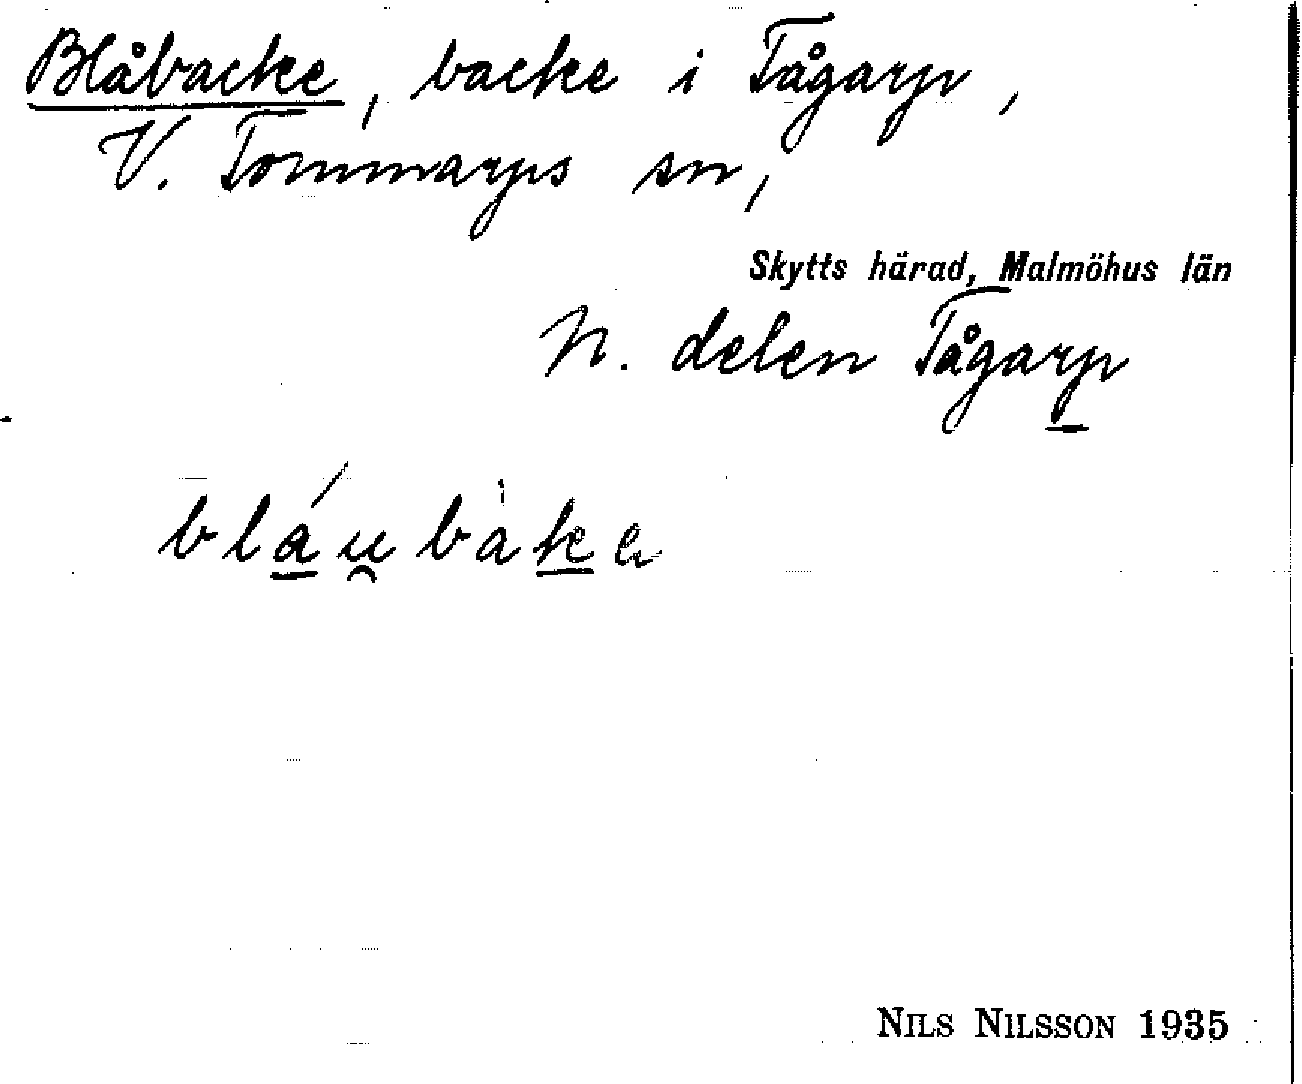 Blåbacke, backe i Tågarp,
V. Tommarps sn,
Skytts härad, Malmöhus län
N. delen Tågarp
bláu̯bàke
NILS NILSSON 1935